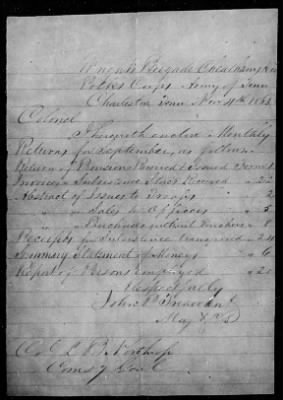 Wrights Brigade Cheatham's Division
Polks Corps Army of Tenn
Charleston Tenn Nov 4th 1863
Colonel
I herewith enclose Monthly
Returns for September, as follows.
Return of Provisions Received & Issued Form 1
Invoices Subsistence Stores Received " 2
Abstract of Issues to Troops " 2
" " Sales to Officers " 5
" " Purchases without Vouchers " 8
Receipts for Subsistence transferred " 24
Summary Statement of Moneys " 6
Report of Persons Employed " 20
Respectfully
John P
Maj & CS
Col L B Northrop
Coms y Genl C